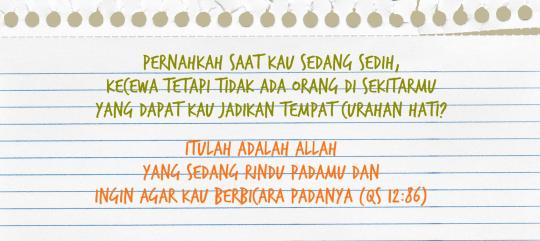 PERNAHKAH SAAT KAU SEDANG SEDIH,
KECEWA TETAPI TIDAK ADA ORANG DI SEKITARMU
YANG DAPAT KAU JADIKAN TEMPAT CURAHAN HATI?
ITULAH ADALAH ALLAH
YANG SEDANG RINDU PADAMU DAN
INGIN AGAR KAU BERBICARA PADANYA (QS 12:86)